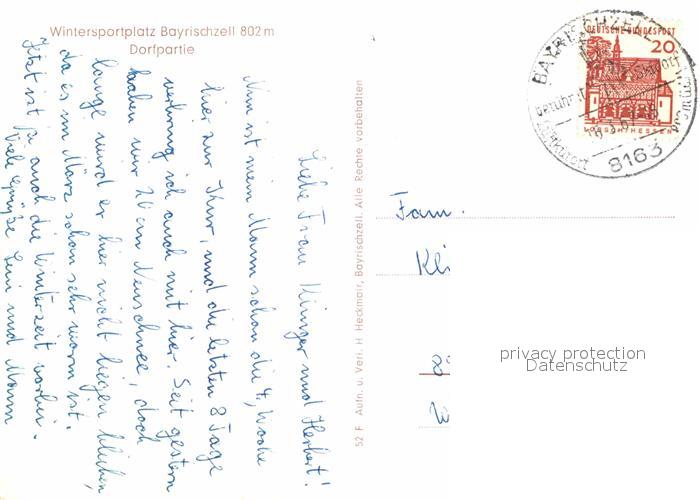 Wintersportplatz Bayrischzell 802 m
Dorfpartie
Liebe Frau Klinger und Herbert!
Nun ist mein Mann schon die 4. Woche
hier zur Kur, und die letzten 8 Tage
verbring ich auch mit hier. Seit gestern
haben wir 20 cm Neuschnee, doch
lange wird er hier nicht liegen bleiben,
da es im März schon sehr warm ist.
Jetzt ist ja auch die Winterzeit vorbei.
Viele Grüße und Mann
52 F Aufn. u. Verl. H Heckmair, Bayrischzell. Alle Rechte vorbehalten
BAYRISCHZELL
8163
DEUTSCHE BUNDESPOST
20
LORSCH/HESSEN
Fam.
Kli
8
W
privacy protection
Datenschutz